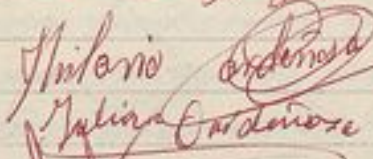 Hilario Cardeñosa
Juliana Cardeñosa